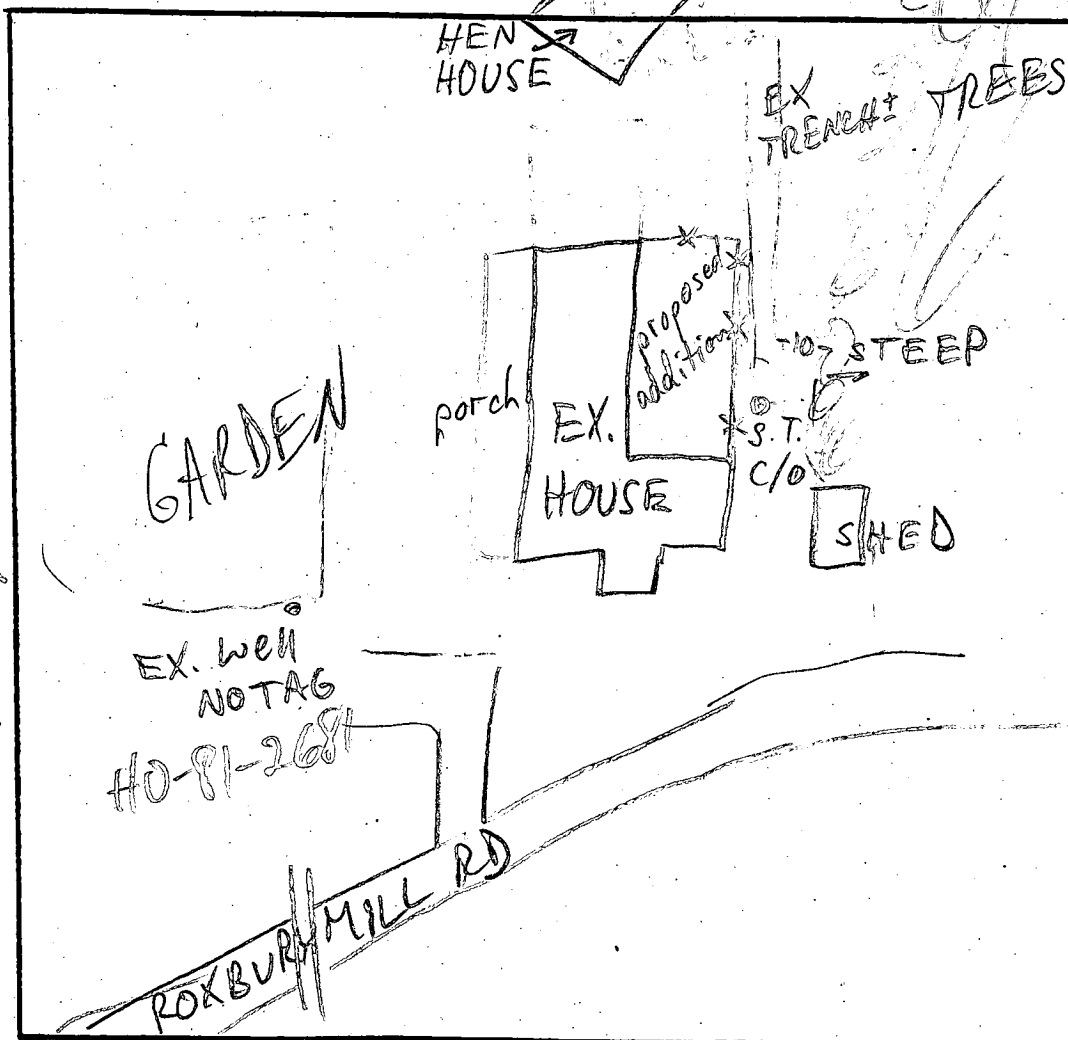 HEN
HOUSE
EX
TRENCH±
TREES
proposed
addition
STEEP
porch
EX.
HOUSE
S.T.
C/O
SHED
GARDEN
EX. well
NO TAG
HO-81-2681
ROXBURY MILL RD